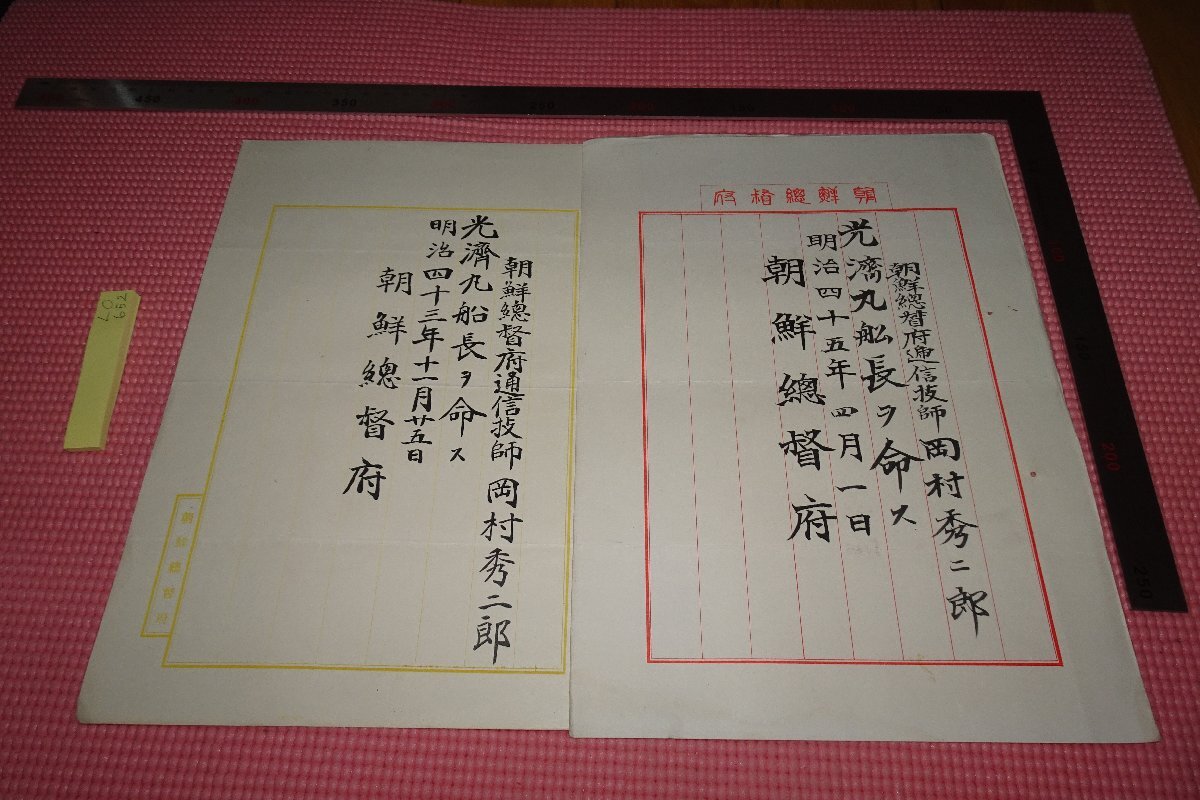 朝鮮總督府
朝鮮總督府通信技師 岡村秀二郎
光濟丸船長ヲ命ス
明治四十五年四月一日
朝鮮總督府
朝鮮總督府通信技師 岡村秀二郎
光濟丸船長ヲ命ス
明治四十三年十一月廿五日
朝鮮總督府
朝鮮總督府
LO
652
200
250